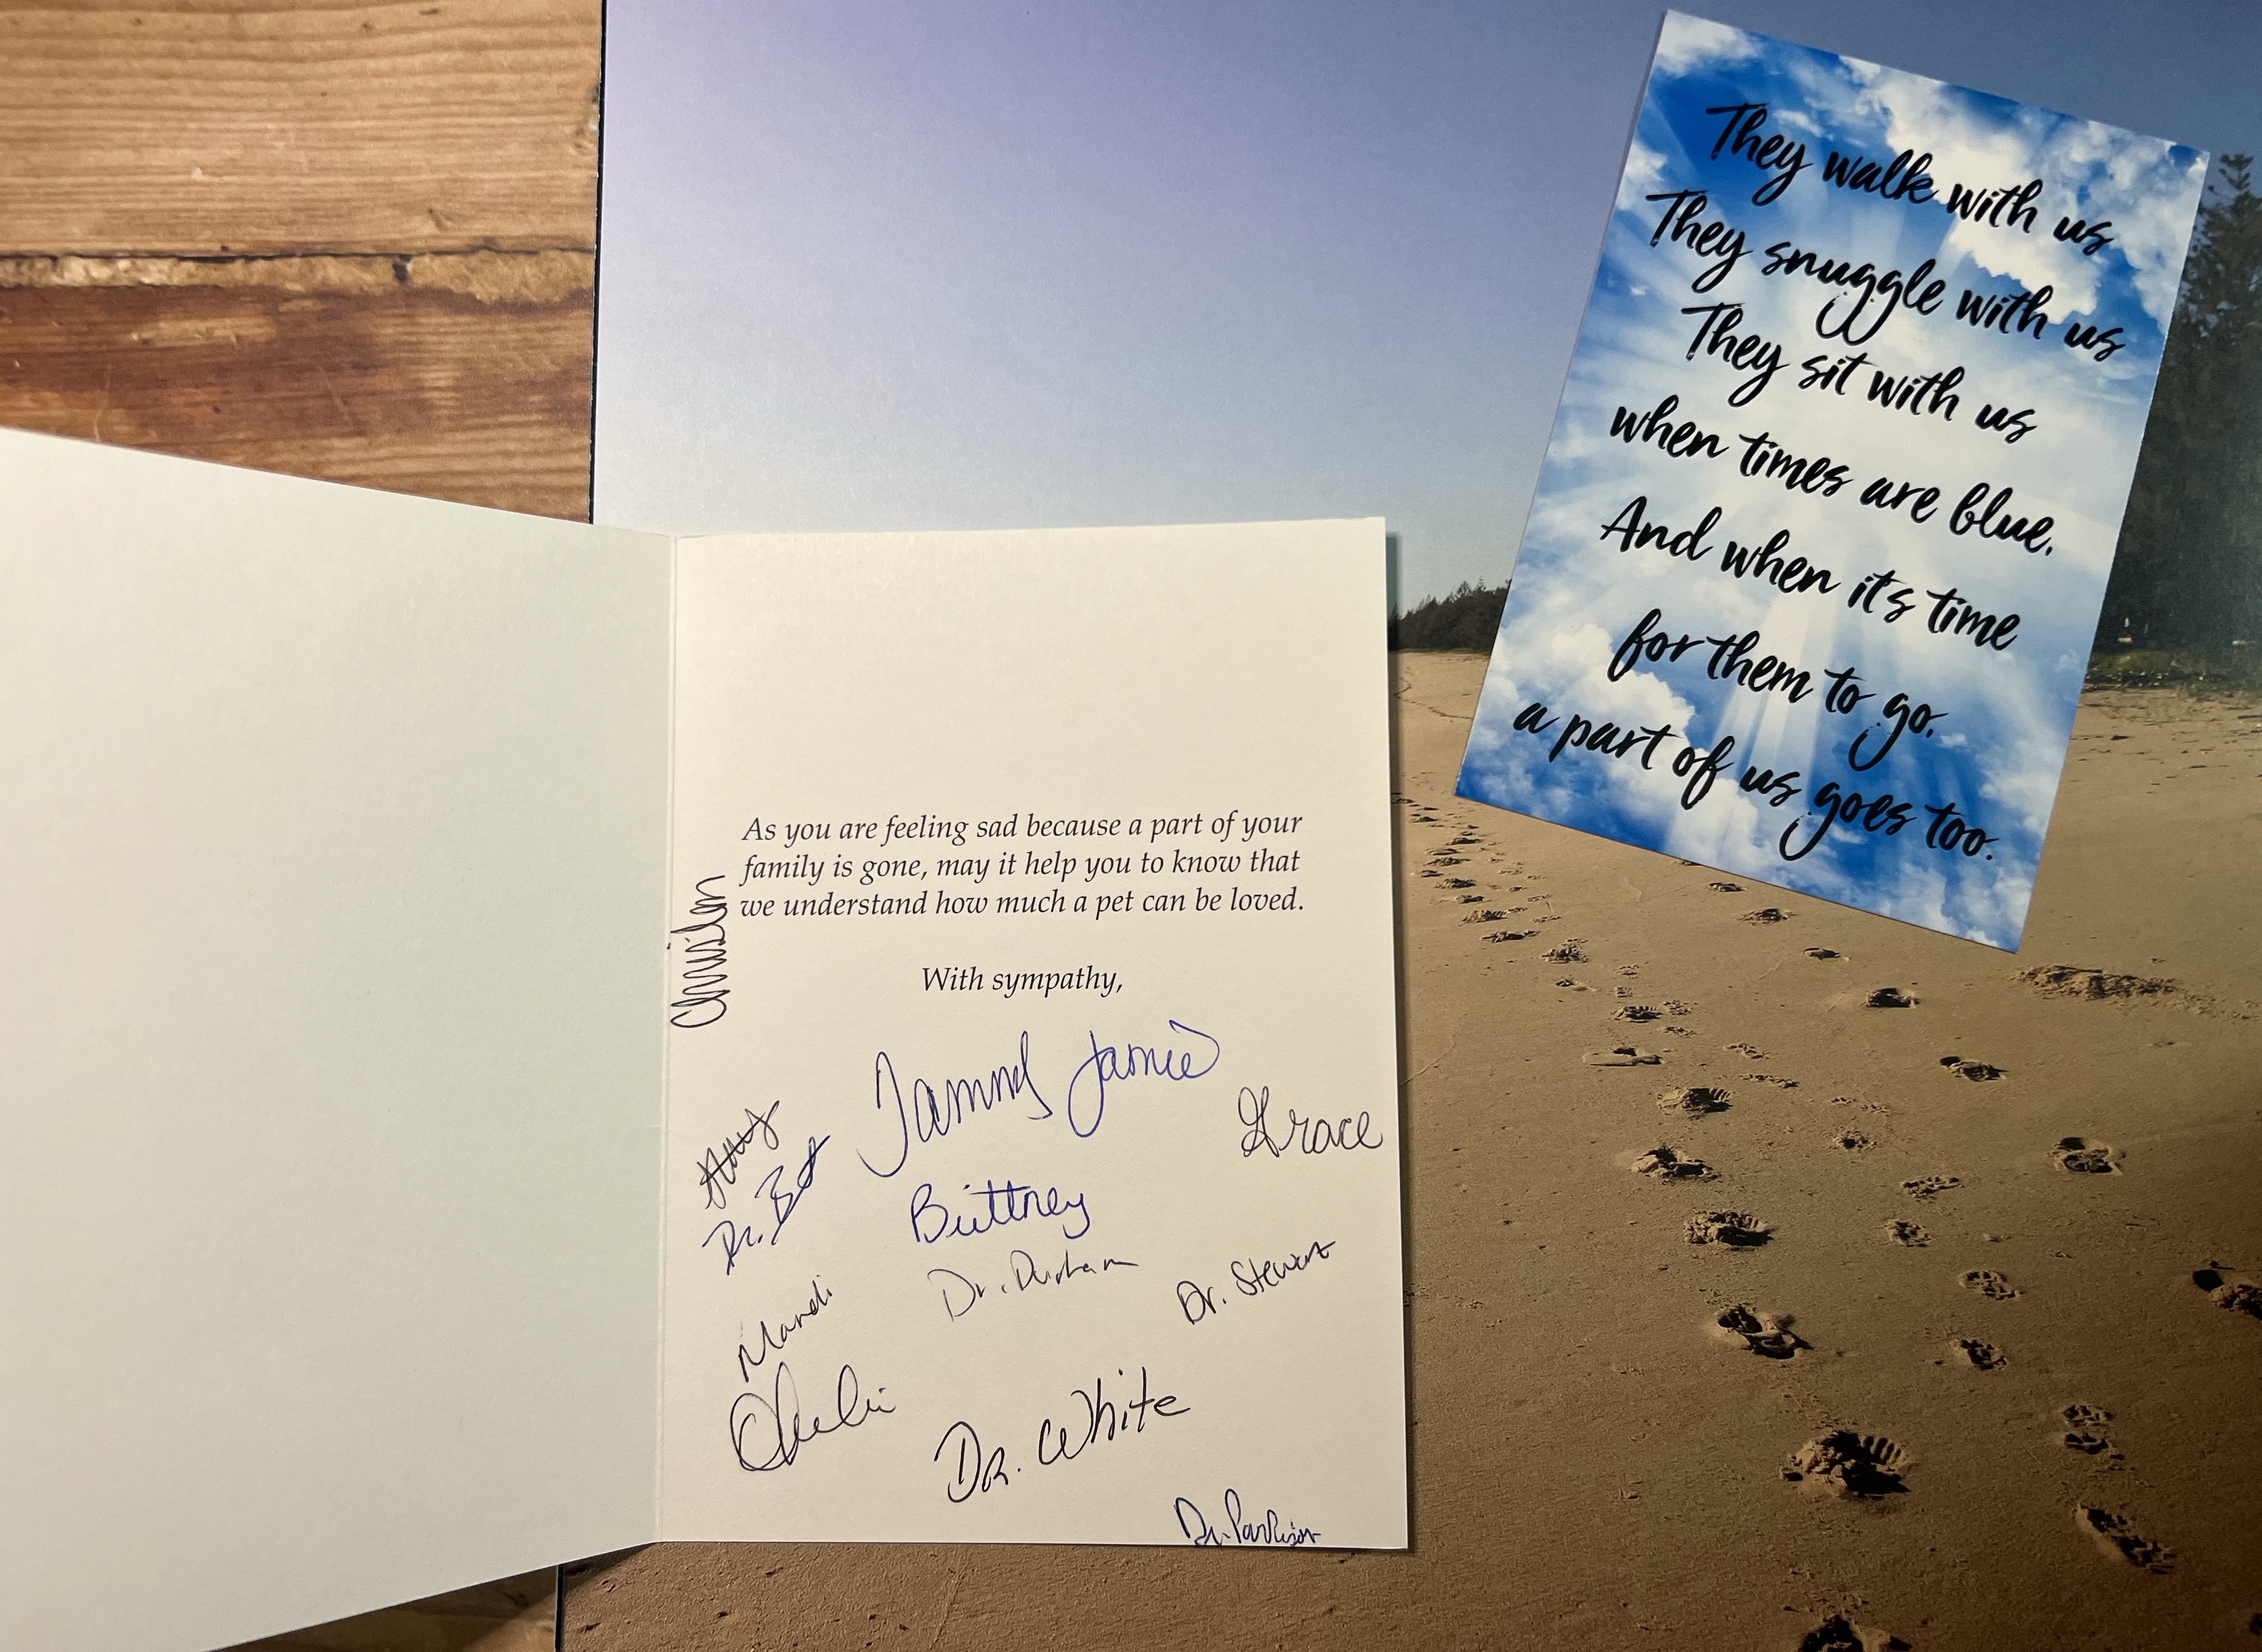 They walk with us
They snuggle with us
They sit with us
when times are blue.
And when it's time
for them to go,
a part of us goes too.
As you are feeling sad because a part of your
family is gone, may it help you to know that
we understand how much a pet can be loved.
With sympathy,
Tammy Jamie
Grace
Amy
Dr.
Brittney
Dr. Durham
Dr. Stewart
Mandi
Dr. White
Dr. Parkison